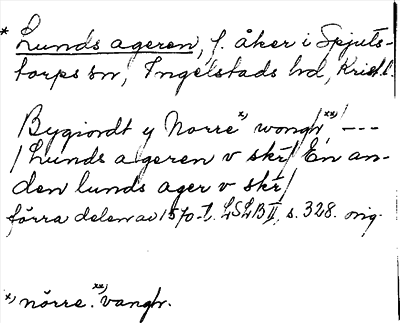 * Lunds ageren, f. åker i Spjuts-
torps sn, Ingelstads hd, Krist. l.
Bygiordt y Norre*) wongh**), ---
/ Lunds ageren v skr/ En an-
den lunds ager v skr/
förra delen av 1570-t. LSLB II, s. 328. orig.
*) nörre. **) vangh.